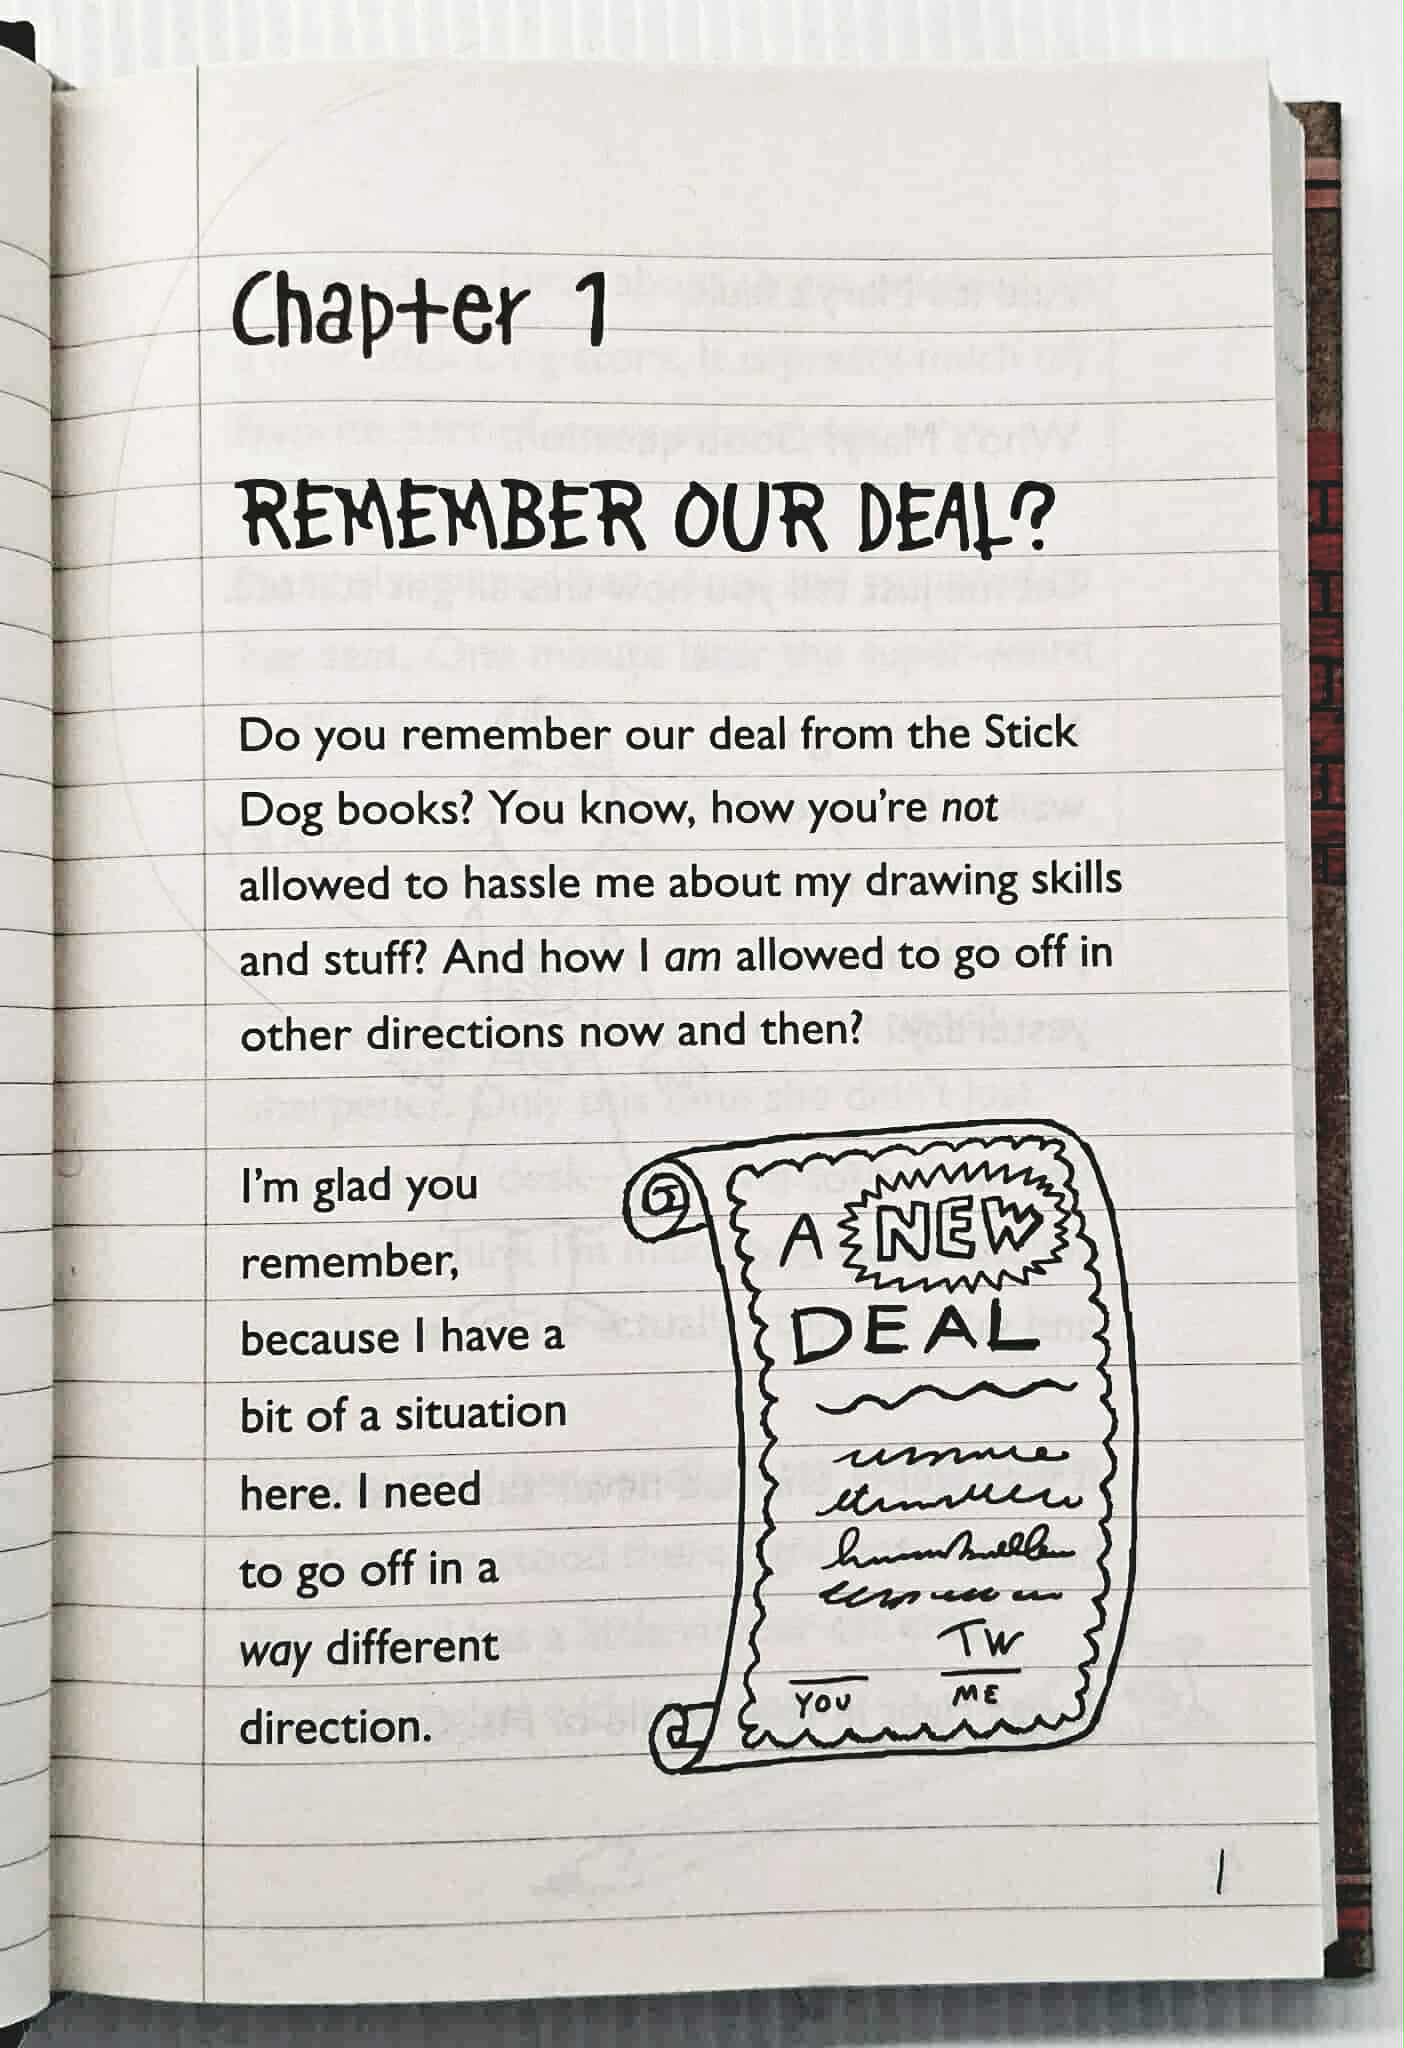 Chapter 1
REMEMBER OUR DEAL?
Do you remember our deal from the Stick
Dog books? You know, how you're not
allowed to hassle me about my drawing skills
and stuff? And how I am allowed to go off in
other directions now and then?
I'm glad you
remember,
because I have a
bit of a situation
here. I need
to go off in a
way different
direction.
A NEW
DEAL
TW
YOU
ME
1